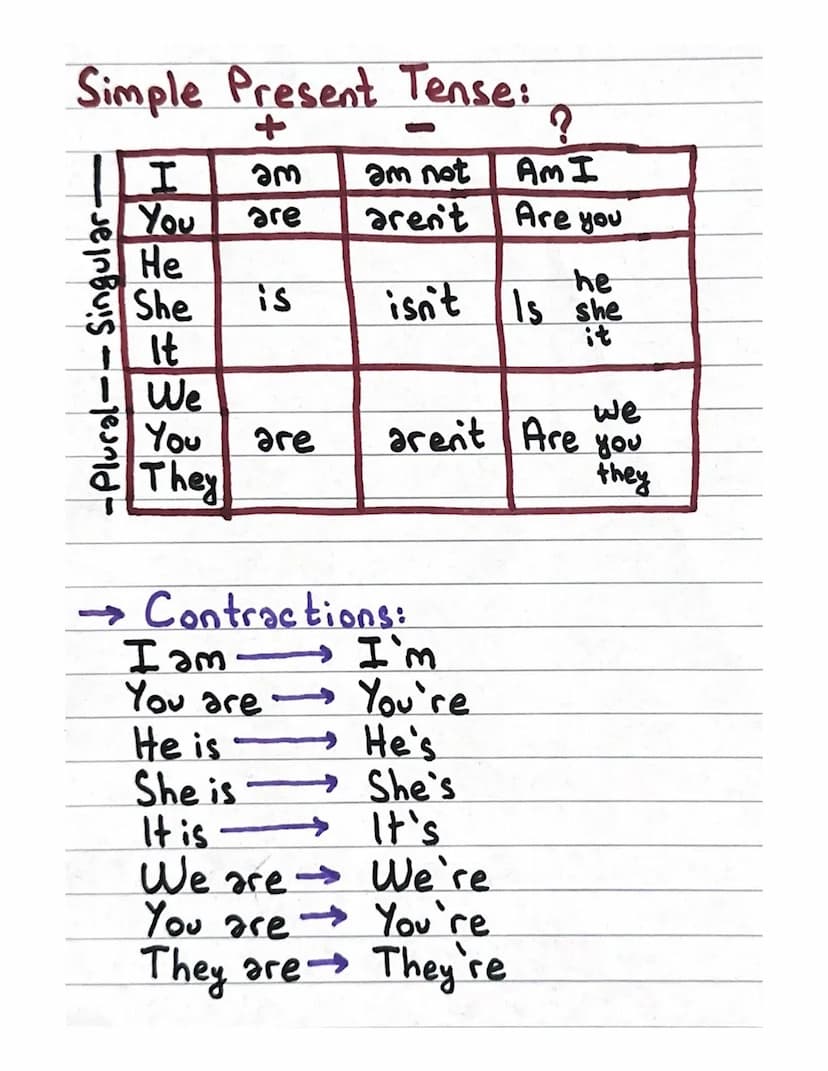 Simple Present Tense:
+ - ?
Singular
Plural
I am am not Am I
You are aren't Are you
He
She is isn't Is he she it
It
We
You are aren't Are we you they
They
→ Contractions:
I am → I'm
You are → You're
He is → He's
She is → She's
It is → It's
We are → We're
You are → You're
They are → They're